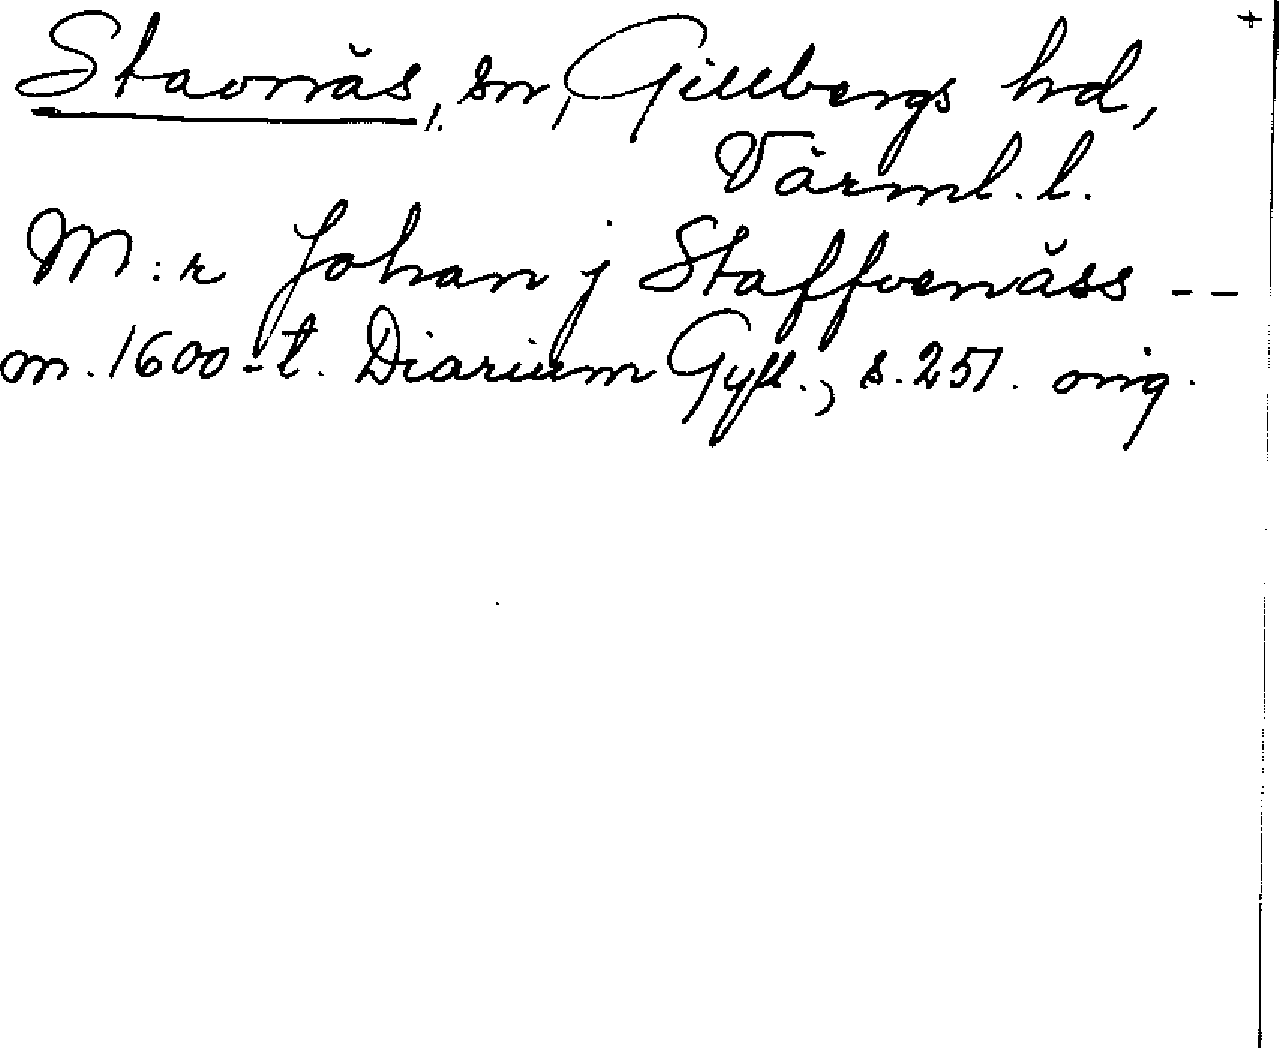 +
Stavnäs, sn, Gillbergs hd,
Värml. l.
M:r Johan j Staffvenäss --
m. 1600-t. Diarium Gyll., s. 251. orig.